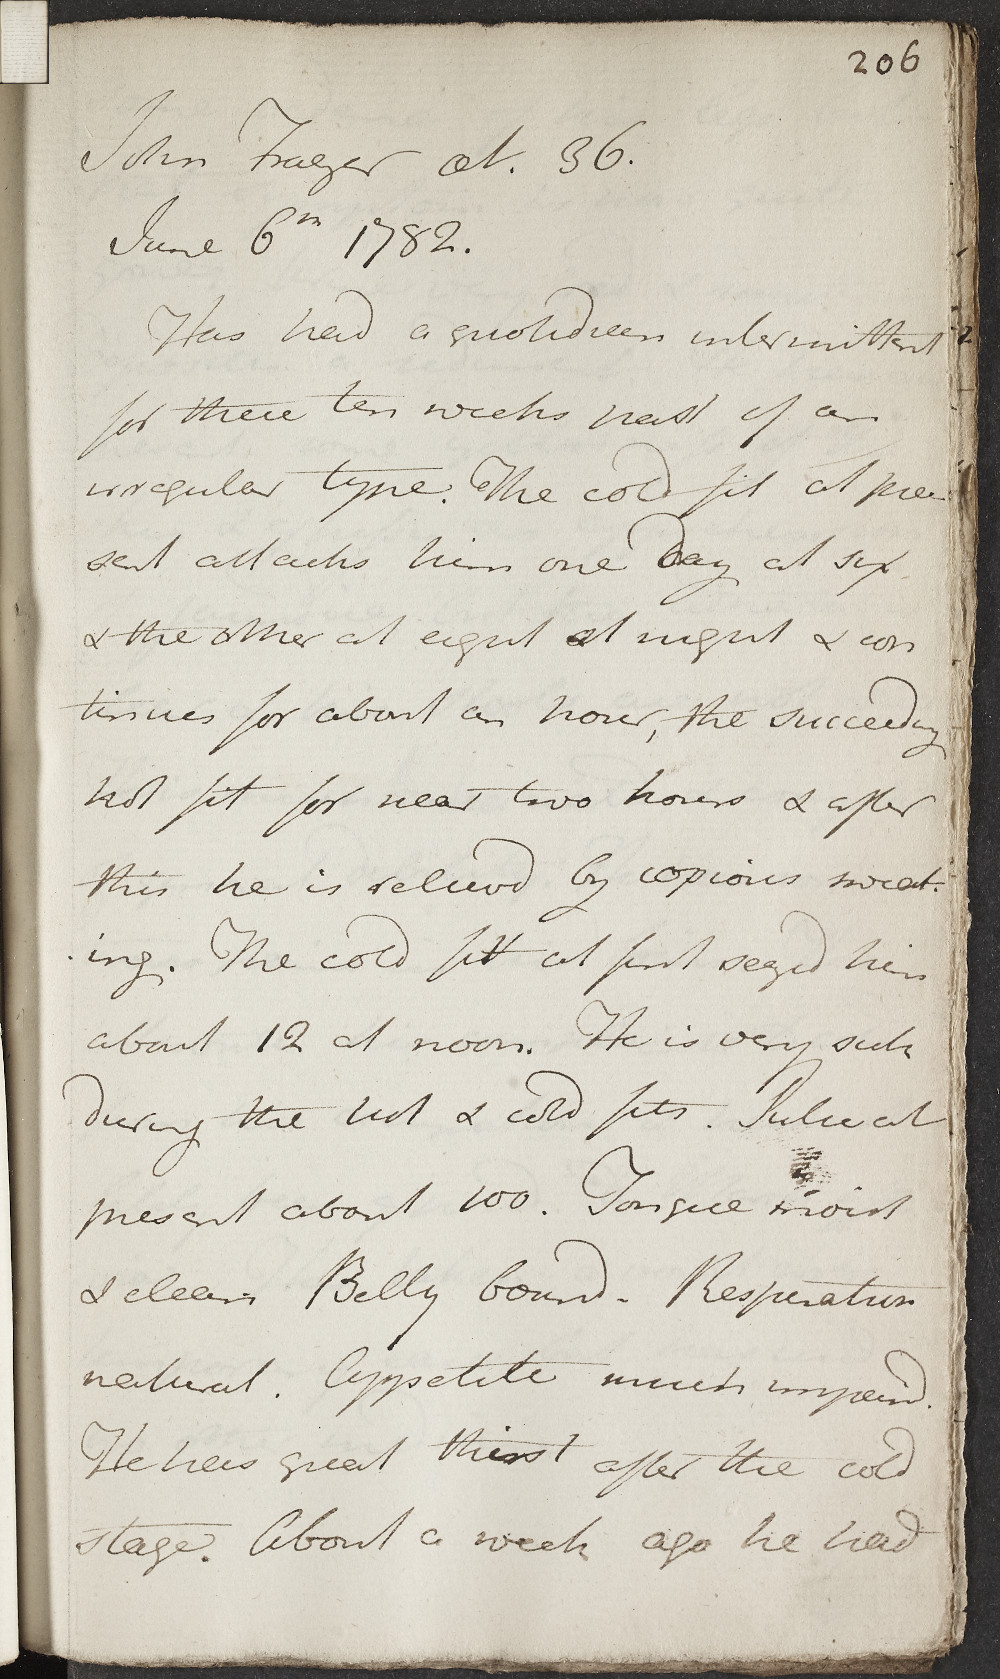 206
John Frazer æt. 36.
June 6th 1782.
Has had a quotidian intermittent
for these ten weeks past of an
irregular type. The cold fit at pre
sent attacks him one Day at six
& the other at eight at night & con
tinues for about an hour, the succeeding
hot fit for near two hours & after
this he is relievd by copious sweat-
-ing. The cold fitt at first seazed him
about 12 at noon. He is very sick
during the hot & cold fits. Pulse at
present about 100. Tongue moist
& clean Belly bound. Respiration
natural. Appetite much impaird.
He has great thirst after the cold
stage. About a week ago he had